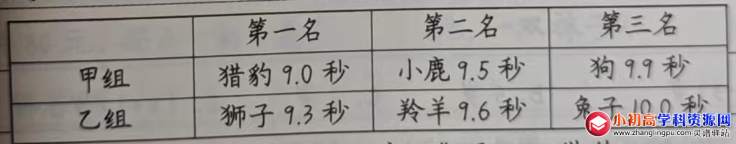 第一名 第二名 第三名
甲组 猎豹 9.0 秒 小鹿 9.5 秒 狗 9.9 秒
乙组 狮子 9.3 秒 羚羊 9.6 秒 兔子 10.0 秒
小初高学科资源网
www.zhanglingpu.com 灵谱驿站